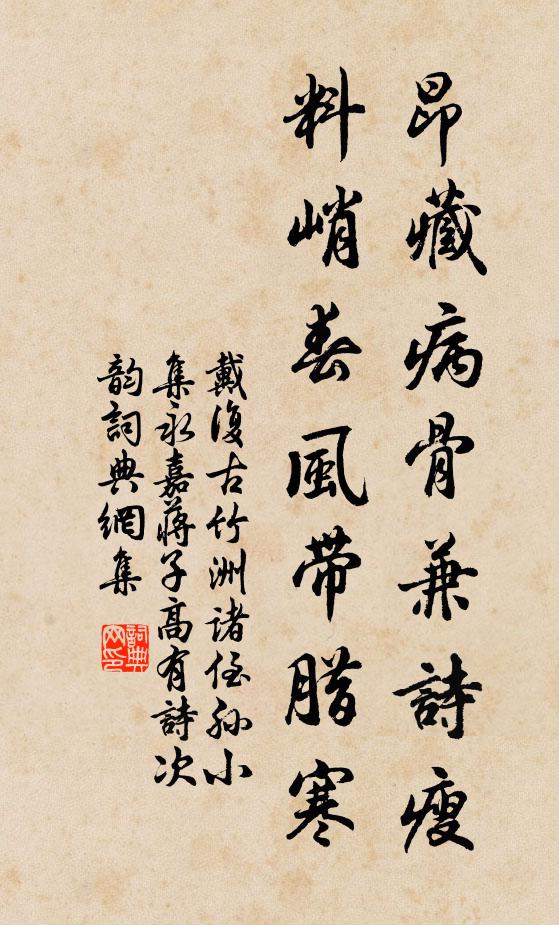 昂藏病骨兼詩瘦
料峭春風帶腊寒
戴復古竹洲諸侄孙小
集永嘉蔣子高有詩次
韵詞典網集
詞典网印